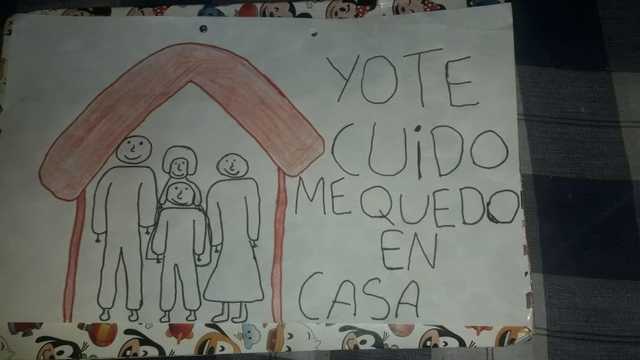 YOTE
CUiDO
ME QUEDO
EN
CASA